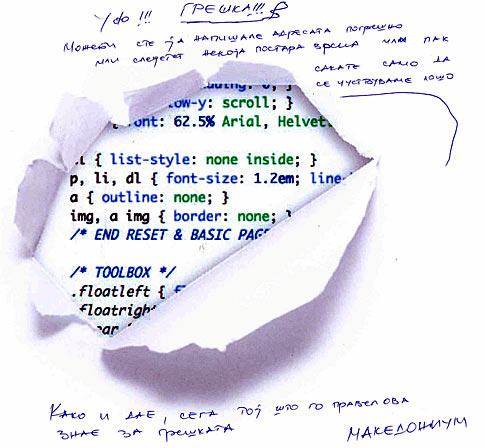 Удо !!! ГРЕШКА!!!
Можеби сте ја напишале адресата погрешно
или следете некоја постара врска или пак
сакате само да
се чуствуваме лошо
ow-y: scroll; }
{ font: 62.5% Arial, Helvet
l { list-style: none inside; }
p, li, dl { font-size: 1.2em; line
a { outline: none; }
img, a img { border: none; }
/* END RESET & BASIC PAG
/* TOOLBOX */
.floatleft { f
floatright
Како и да е, сега тој што го правел ова
знае за грешката
МАКЕДОНИУМ